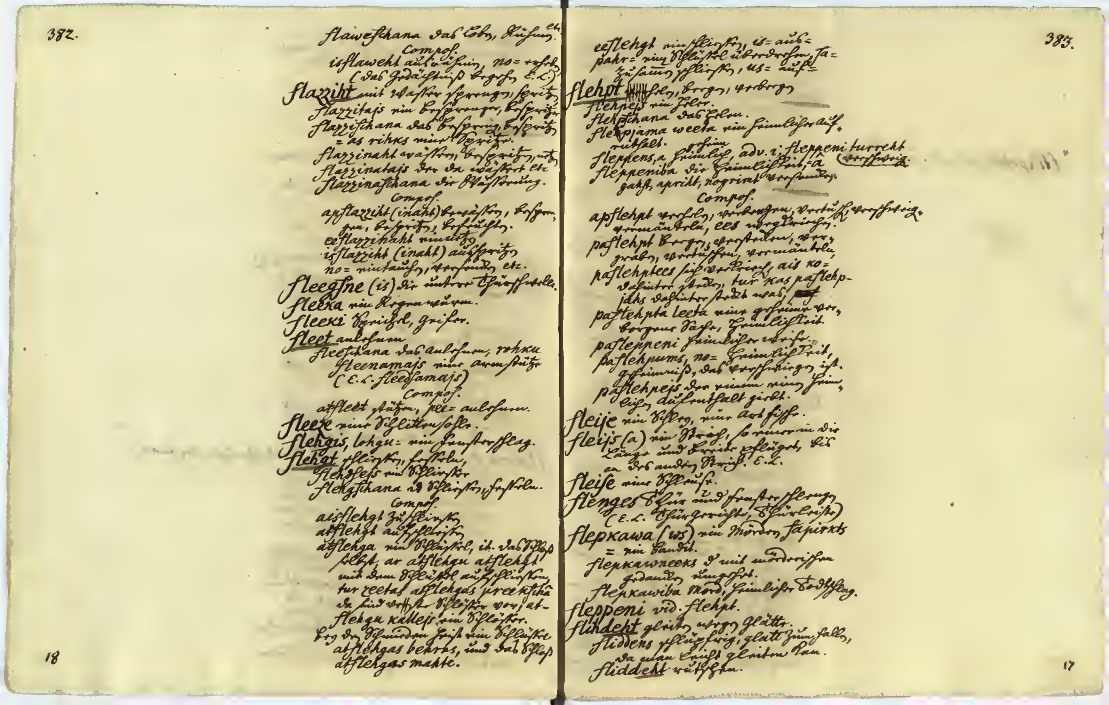 382.
flaweschana das Loben, Rühmen
Compos.
isflaweht ausrühmen, no=
(das Gedächtniß begehen E.L.)
flazziht mit Wasser sprengen, spritzen
flazzitajs ein besprenger, bespritzer
flazzischana das besprengen, bespritzen
= as rihks eine Spritze.
flazzinaht wässern, bespritzen, netzen
flazzinatajs der da wässert etc
flazzinaschana die Wässerung.
Compos.
apflazziht (inaht) bewässern, bespren-
gen, bespritzen, befeuchten.
eeflazzinaht einnetzen
isflazziht (inaht) ausspritzen
no= eintauchen, versenken etc.
fleegsne (is) die untere Thürschwelle.
fleeka ein Regenwurm.
fleeki Speichel, Geifer.
fleet anlehnen
fleeschana das Anlehnen, rohku
fleenamajs eine Armstütze
(E.L. fleedsamajs)
Compos.
atfleet stützen, pee= anlehnen.
fleeze eine Schlittensohle.
flehgis, lohgu= ein Fensterschlag.
flehgt schliessen, fesseln,
flehdsejs ein Schliesser
flehgschana das Schliessen, fesseln.
Compos.
aisflehgt zuschliessen
atflehgt aufschliessen
atflehga ein Schlüssel, it. das Schloß
selbst, ar atflehgu atflehgt
mit dem Schlüssel aufschliessen,
tur zeetas atflehgas preekschâ
da sind veste Schlösser vor, at-
flehgu kallejs ein Schlösser.
bey den Schmieden heist ein Schlüssel
atflehgas behrns, und das Schloß
atflehgas mahte.
18
383.
eeflehgt einschliessen, is= aus=
pahr= ein Schlüssel überdrehen, sa=
zusammen schliessen, us= auf=
flehpt helen, bergen, verbergen
flehpejs ein Heler.
flehpschana das Helen.
flehpjama weeta ein heimlicher Auf-
enthalt.
fleppens, a heimlich, adv. i. fleppeni turreht
fleppeniba die Heimlichkeit (verschweig.
gahst, aprikt, nogrimt versenken
Compos.
apflehpt verhelen, verbergen, vertuschen, verschweigen,
vermänteln, ees wegschleichen.
paflehpt bergen, verstecken, ver-
graben, vertuschen, vermänteln,
paflehptees sich verkriechen, ais ko=
dahinter stecken, tur kas paflehp-
jahs dahinter steckt was,
paflehpta leeta eine geheime ver-
borgene Sache, Heimlichkeit.
pafleppeni heimlicher weise.
paflehpums, no= Heimlichkeit,
Geheimniß, das verschwiegen ist.
paflehpejs der einem einen heim-
lichen Aufenthalt giebt.
fleije ein Schley, eine Art Fische.
fleijs (a) ein Strich, so einer in die
Länge und Breite pflüget, bis
an des andern Strich. E.L.
fleise eine Schleuse.
flenges Thür und Fensterschlengen
(E.L. Thürgericht, Thürleiste)
flepkawa (ws) ein Mörder, sapirkts
= ein Bandit.
flepkawneeks d mit mörderischen
gedanken umgehet.
flepkawiba Mord, heimlicher Todtschlag.
fleppeni vid. flehpt.
flihdeht gleiten wegen Glätte.
fliddens schlüpfrig, glatt zum fallen,
da man leicht gleiten kan.
fliddeht rutschen.
17